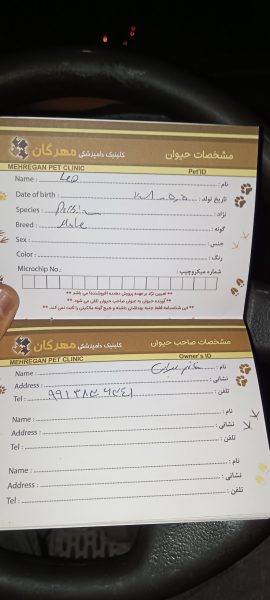 کلینیک دامپزشکی مهرگان مشخصات حیوان
MEHREGAN PET CLINIC Pet'ID
Name : Leo نام :
Date of birth : تاریخ تولد :
Species : نژاد :
Breed : Male گونه :
Sex : جنس :
Color : رنگ :
Microchip No.: شماره میکروچیپ :
** تعیین نژاد بر عهده پرورش دهنده (فروشنده) می باشد **
** آورنده حیوان به عنوان صاحب حیوان تلقی می شود. **
** این شناسنامه فقط جنبه بهداشتی داشته و هیچ گونه مالکیتی را ثابت نمی کند. **
کلینیک دامپزشکی مهرگان مشخصات صاحب حیوان
MEHREGAN PET CLINIC Owner's ID
Name : نام :
Address : نشانی :
Tel : تلفن :
Name : نام :
Address : نشانی :
Tel : تلفن :
Name : نام :
Address : نشانی :
Tel : تلفن :